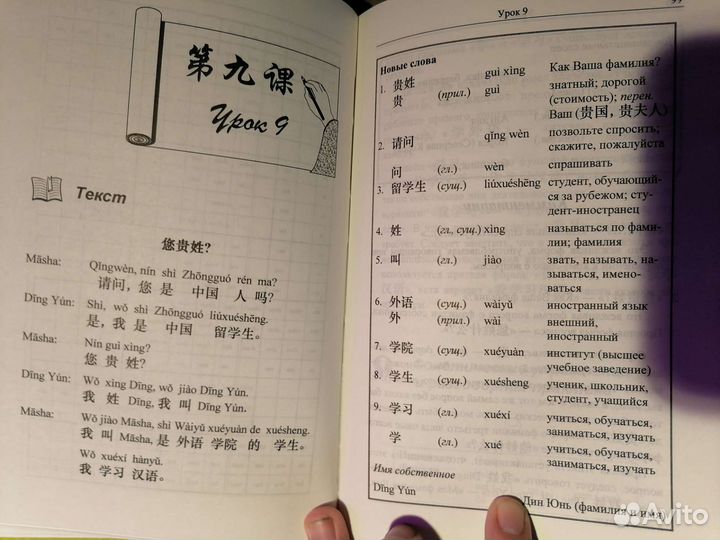 第九课
Урок 9
Текст
您贵姓?
Māsha: Qǐngwèn, nín shì Zhōngguó rén ma?
请问, 您 是 中国 人 吗?
Dīng Yún: Shì, wǒ shì Zhōngguó liúxuéshēng.
是, 我 是 中国 留学生。
Māsha: Nín guì xìng?
您 贵 姓?
Dīng Yún: Wǒ xìng Dīng, wǒ jiào Dīng Yún.
我 姓 Dīng, 我 叫 Dīng Yún.
Māsha: Wǒ jiào Māsha, shì Wàiyǔ xuéyuàn de xuésheng.
我 叫 Māsha, 是 外语 学院 的 学生。
Wǒ xuéxí hànyǔ.
我 学习 汉语。
Урок 9
99
Новые слова
1. 贵姓 guì xìng Как Ваша фамилия?
贵 (прил.) guì знатный; дорогой
(стоимость); перен.
Ваш (贵国, 贵夫人)
2. 请问 qǐng wèn позвольте спросить;
скажите, пожалуйста
问 (гл.) wèn спрашивать
3. 留学生 (сущ.) liúxuéshēng студент, обучающий-
ся за рубежом; сту-
дент-иностранец
4. 姓 (гл., сущ.) xìng называться по фами-
лии; фамилия
5. 叫 (гл.) jiào звать, называть, на-
зываться, имено-
ваться
6. 外语 (сущ.) wàiyǔ иностранный язык
外 (прил.) wài внешний,
иностранный
7. 学院 (сущ.) xuéyuàn институт (высшее
учебное заведение)
8. 学生 (сущ.) xuésheng ученик, школьник,
студент, учащийся
9. 学习 (гл.) xuéxí учиться, обучаться,
заниматься, изучать
学 (гл.) xué учиться, обучаться,
заниматься, изучать
Имя собственное
Dīng Yún Дин Юнь (фамилия и имя)
Avito